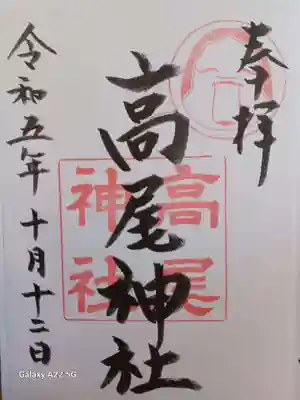 奉拝
高尾神社
高尾
神社
令和五年 十月十二日
Galaxy A22 5G